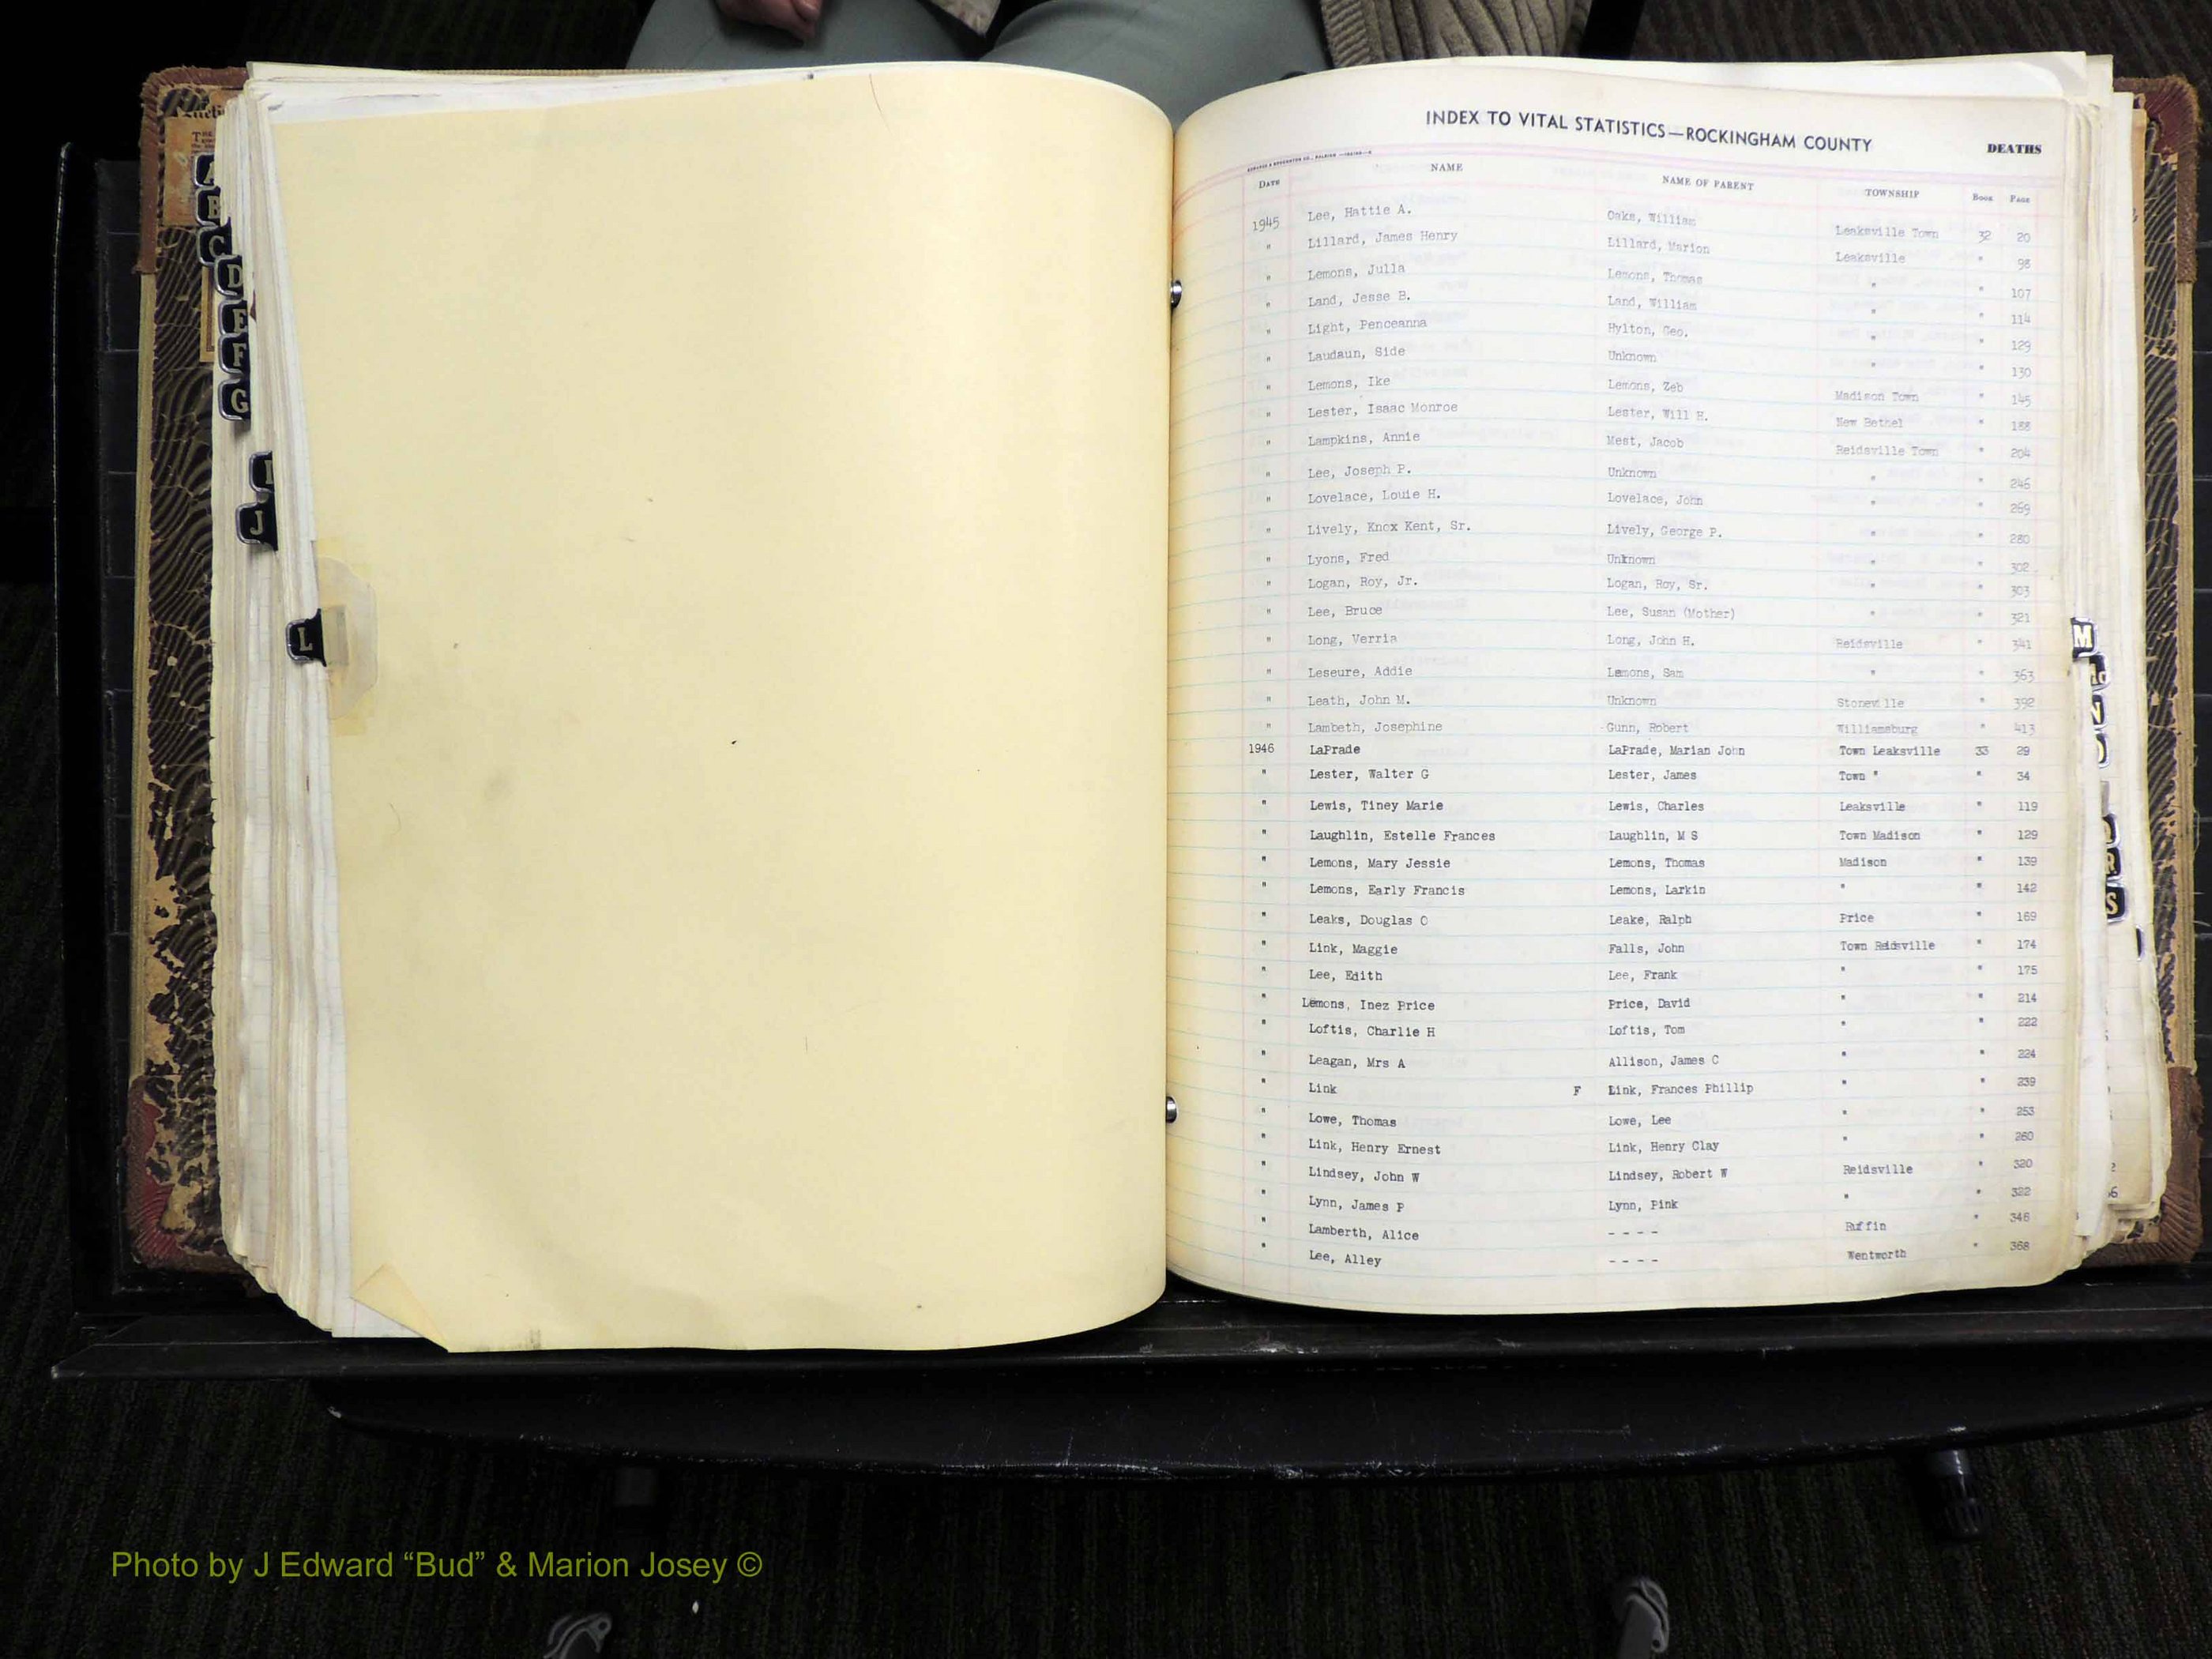 A
B
C
D
E
F
G
J
L
INDEX TO VITAL STATISTICS—ROCKINGHAM COUNTY DEATHS
DATE NAME NAME OF PARENT TOWNSHIP BOOK PAGE
1945 Lee, Hattie A. Oaks, William Leaksville Town 32 20
" Lillard, James Henry Lillard, Marion Leaksville " 98
" Lemons, Julla Lemons, Thomas " " 107
" Land, Jesse B. Land, William " " 114
" Light, Penceanna Hylton, Geo. " " 129
" Laudaun, Side Unknown " " 130
" Lemons, Ike Lemons, Zeb Madison Town " 145
" Lester, Isaac Monroe Lester, Will H. New Bethel " 188
" Lampkins, Annie Mest, Jacob Reidsville Town " 204
" Lee, Joseph P. Unknown " " 246
" Lovelace, Louie H. Lovelace, John " " 269
" Lively, Knox Kent, Sr. Lively, George P. " " 280
" Lyons, Fred Unknown " " 302
" Logan, Roy, Jr. Logan, Roy, Sr. " " 303
" Lee, Bruce Lee, Susan (Mother) " " 321
" Long, Verria Long, John H. Reidsville " 341
" Leseure, Addie Lemons, Sam " " 363
" Leath, John M. Unknown Stoneville " 392
" Lambeth, Josephine Gunn, Robert Williamsburg " 413
1946 LaPrade LaPrade, Marian John Town Leaksville 33 29
" Lester, Walter G Lester, James Town " " 34
" Lewis, Tiney Marie Lewis, Charles Leaksville " 119
" Laughlin, Estelle Frances Laughlin, M S Town Madison " 129
" Lemons, Mary Jessie Lemons, Thomas Madison " 139
" Lemons, Early Francis Lemons, Larkin " " 142
" Leaks, Douglas O Leake, Ralph Price " 169
" Link, Maggie Falls, John Town Reidsville " 174
" Lee, Edith Lee, Frank " " 175
" Lemons, Inez Price Price, David " " 214
" Loftis, Charlie H Loftis, Tom " " 222
" Leagan, Mrs A Allison, James C " " 224
" Link F Link, Frances Phillip " " 239
" Lowe, Thomas Lowe, Lee " " 253
" Link, Henry Ernest Link, Henry Clay " " 260
" Lindsey, John W Lindsey, Robert W Reidsville " 320
" Lynn, James P Lynn, Pink " " 322
" Lamberth, Alice - - - - Ruffin " 346
" Lee, Alley - - - - Wentworth " 368
M
N
R
S
Photo by J Edward “Bud” & Marion Josey ©